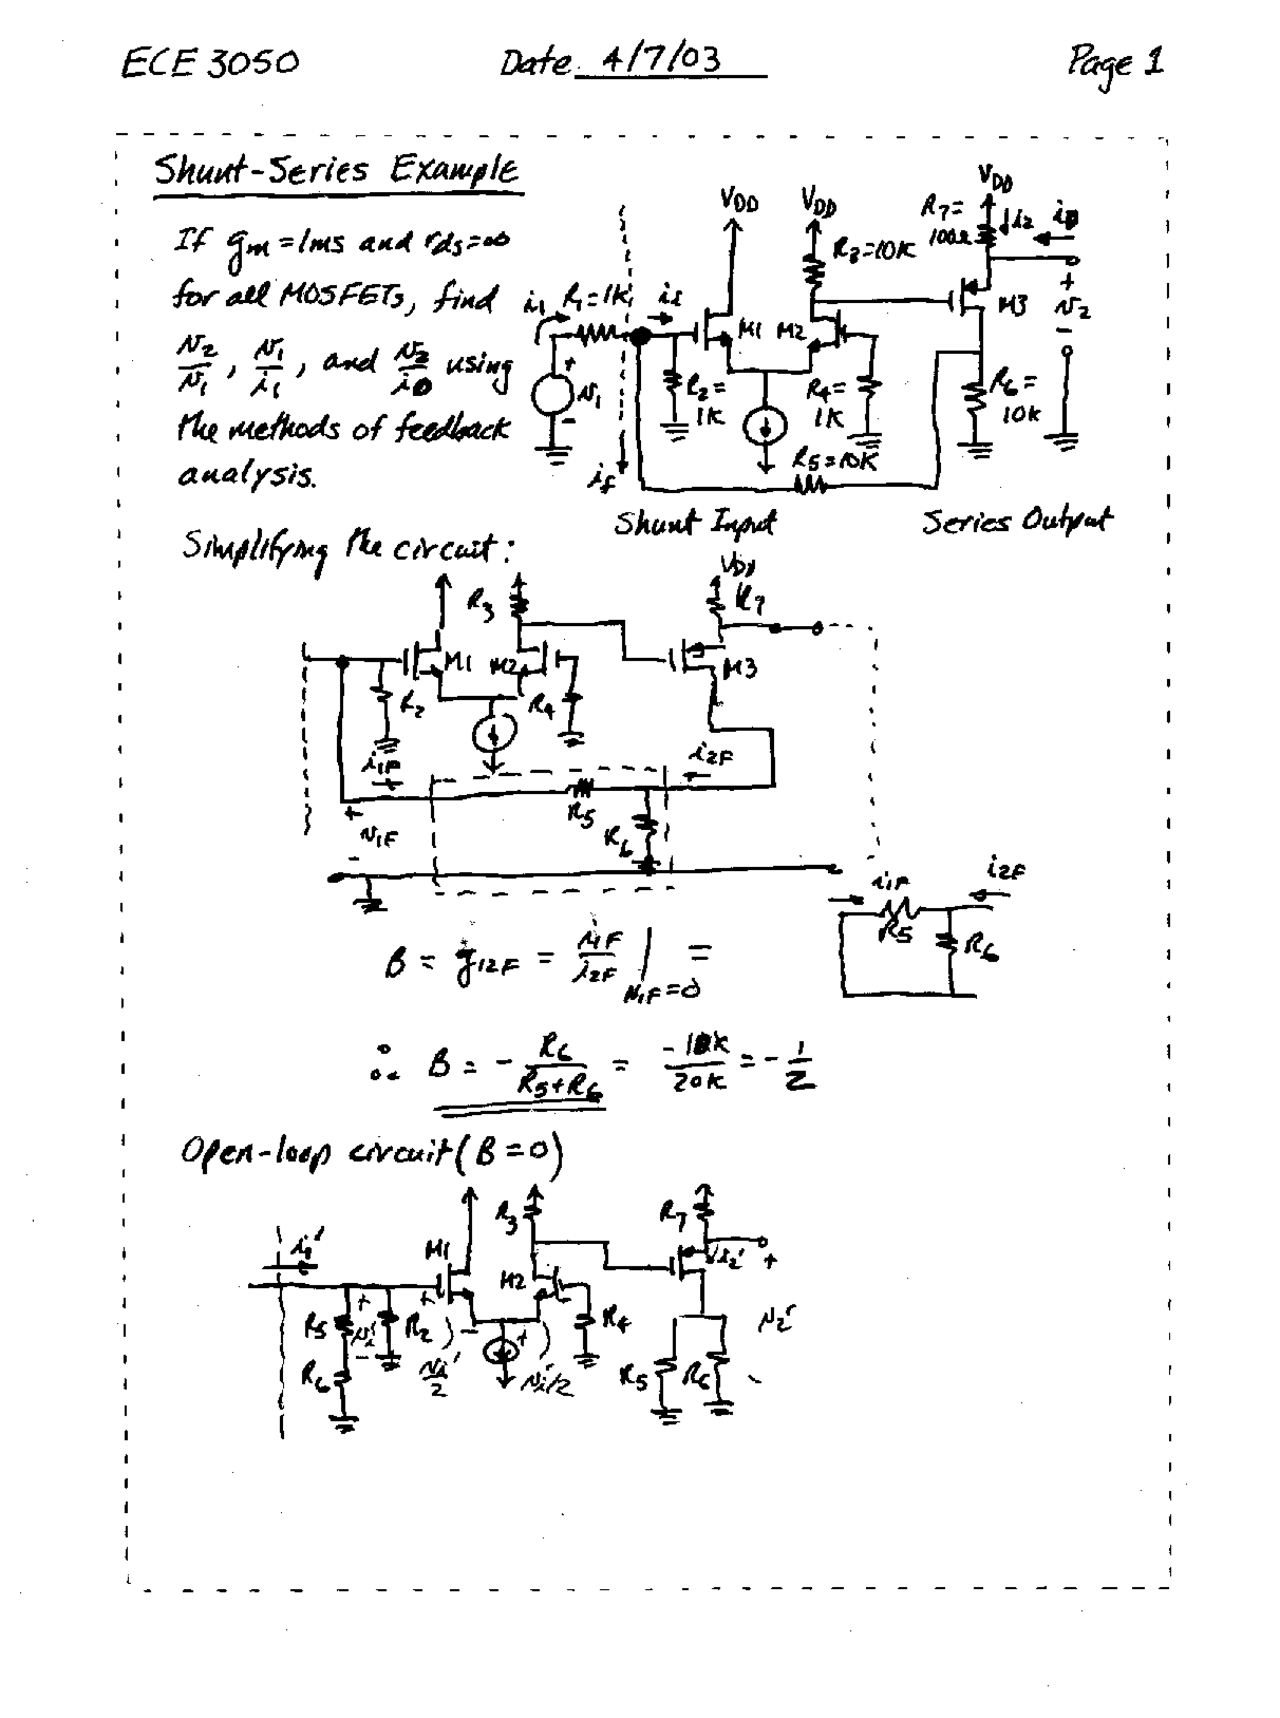 ECE 3050 Date 4/7/03 Page 1
Shunt-Series Example
If gm = 1ms and rds = ∞
for all MOSFETs, find
v2/v1, v1/i1, and v2/i0 using
the methods of feedback
analysis.
VDD VDD VDD
R7= 100Ω i2 i0
R3=10K
i1 R1=1K ii
M1 M2 M3
+ v2 -
+ v1 -
R2= 1K R4= 1K R6= 10K
if R5=10K
Shunt Input Series Output
Simplifying the circuit:
R3 VDD R7
M1 M2 M3
R2 R4
i1F i2F
+ v1F - R5 R6
i1F i2F
R5 R6
B = g12F = i1F/i2F | v1F=0 =
∴ B = - R6/(R5+R6) = -10K/20K = - 1/2
Open-loop circuit (B=0)
i1' M1 R3 M2 R7 i2' +
R5 + vi' - R2 + - + R4 v2'
R6 vi'/2 vi'/2 R5 R6